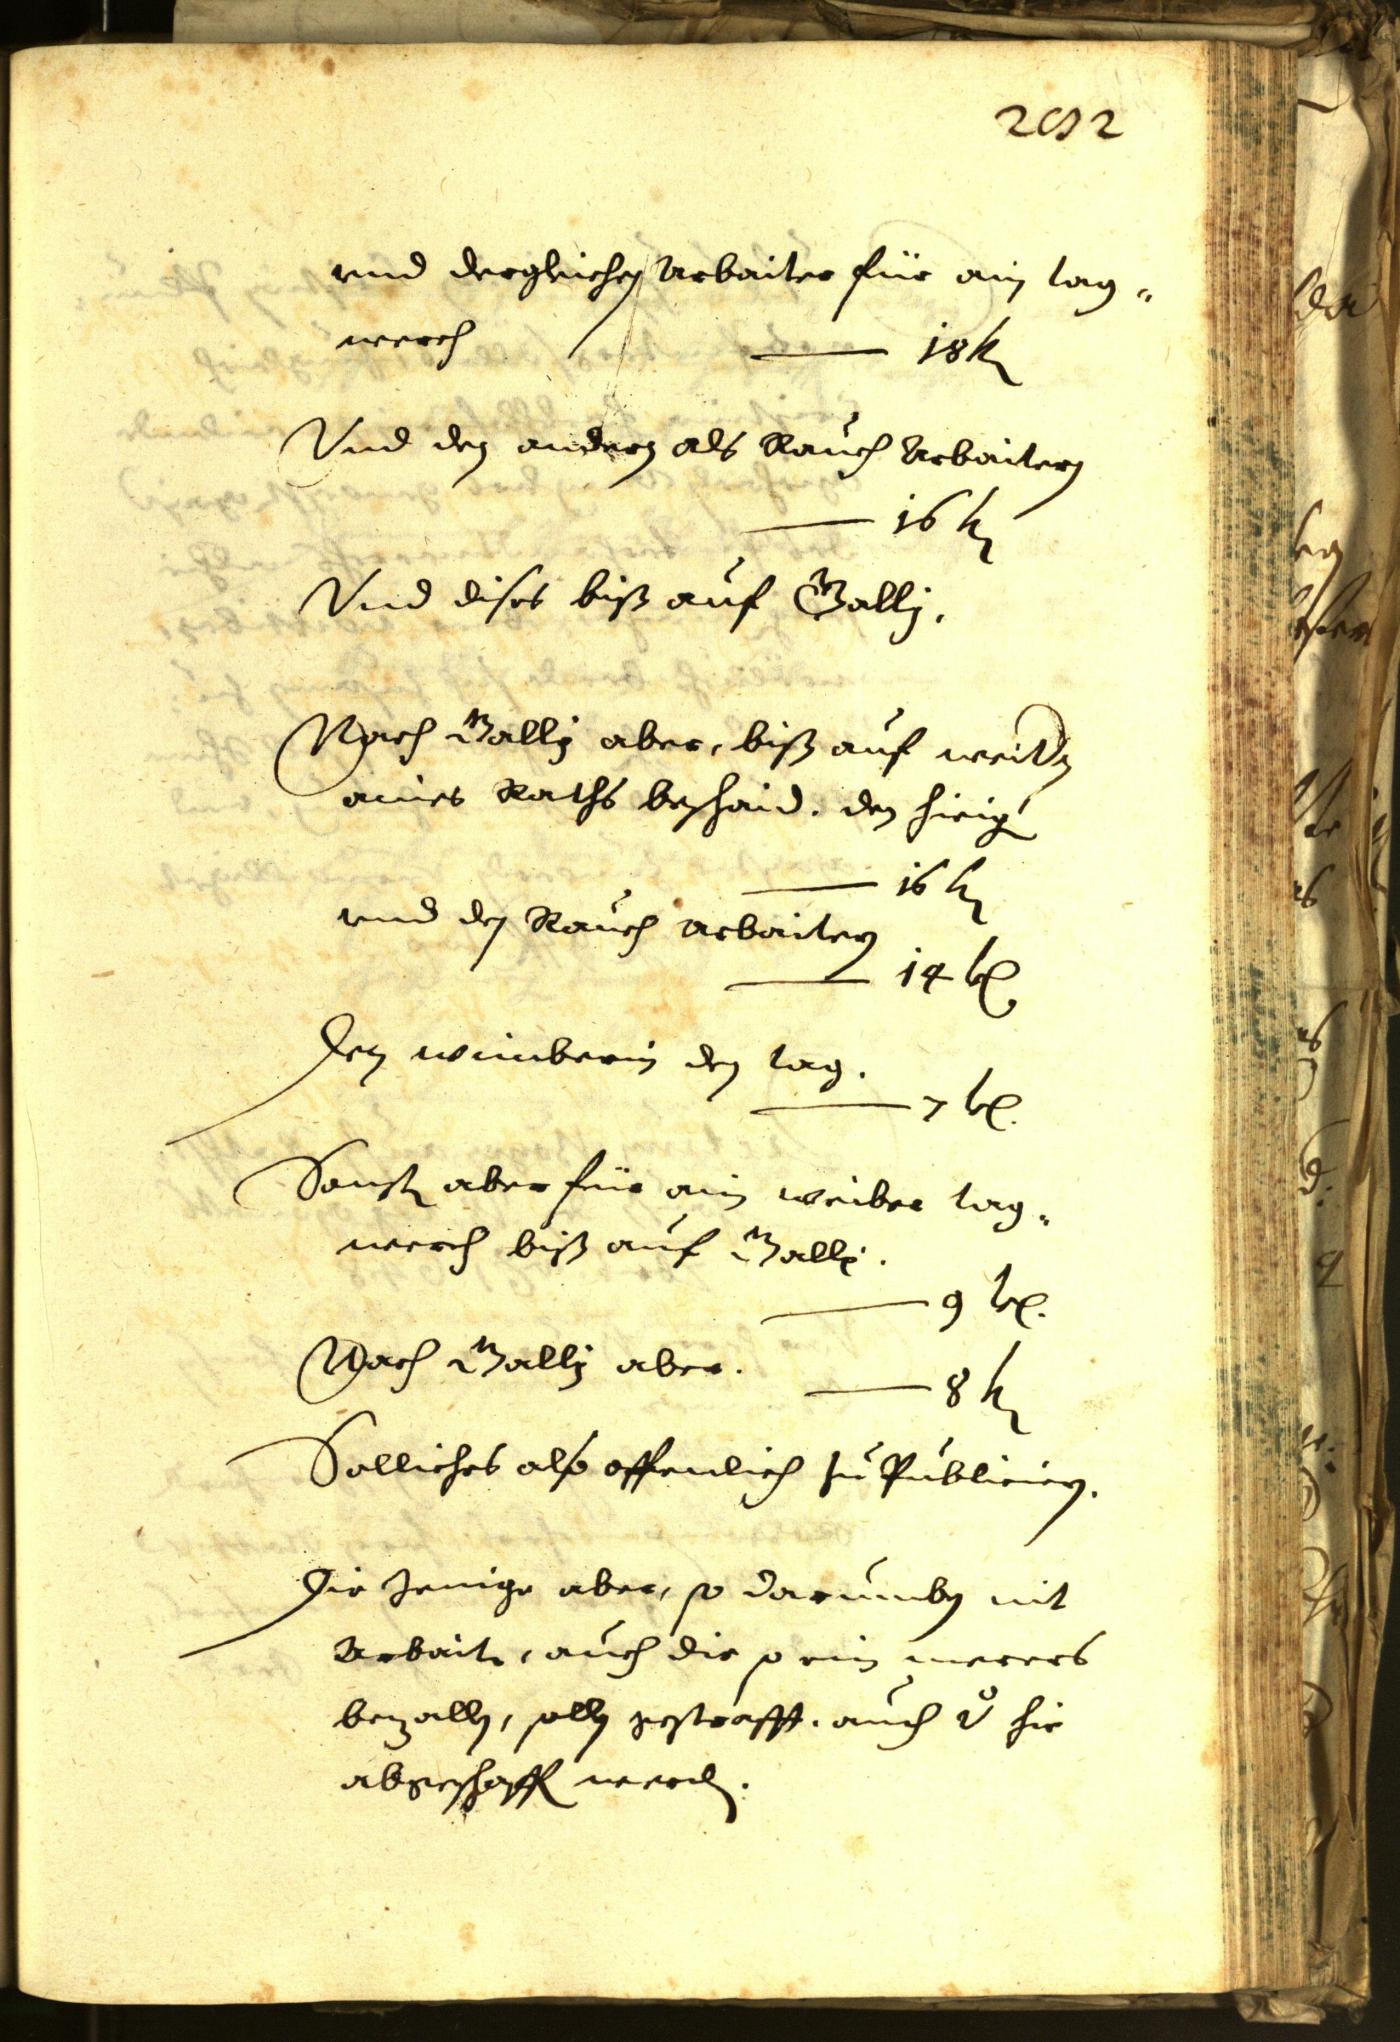 202
vnd dergleichen Arbaiter für ain tag„
werch —— 18 k
Vnd den andern als Rauch Arbaitern
—— 16 k
Vnd dises biß auf Gallj.
Nach Gallj aber, biß auf weitern
aines Raths beschaid. den hieig
—— 16 k
vnd den Rauch arbaitern
—— 14 kr
Den wimberin den tag.
—— 7 kr.
Sonst aber für ain weiber tag„
werch biß auf Galli.
—— 9 kr.
Nach Gallj aber.
—— 8 k
Solliches also offenlich zu Publiciern.
Die Jenige aber, so darumben nit
Arbaiten, auch die so ein merers
bezallen, sollen gestrafft. auch v hie
abgeschafft werden.